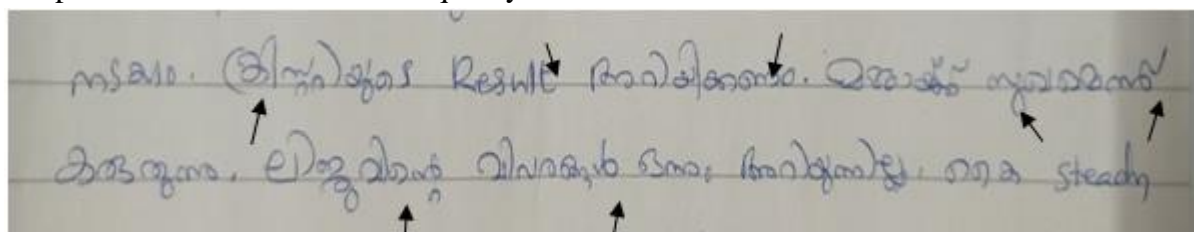 നടക്കും. ക്രിസ്റ്റിയുടെ Result അറിയിക്കണം. മമ്മക്ക് സുഖമെന്ന്
കരുതുന്നു. ലിജുവിന്റെ വിവരങ്ങൾ ഒന്നും അറിയുന്നില്ല. കൈ steady